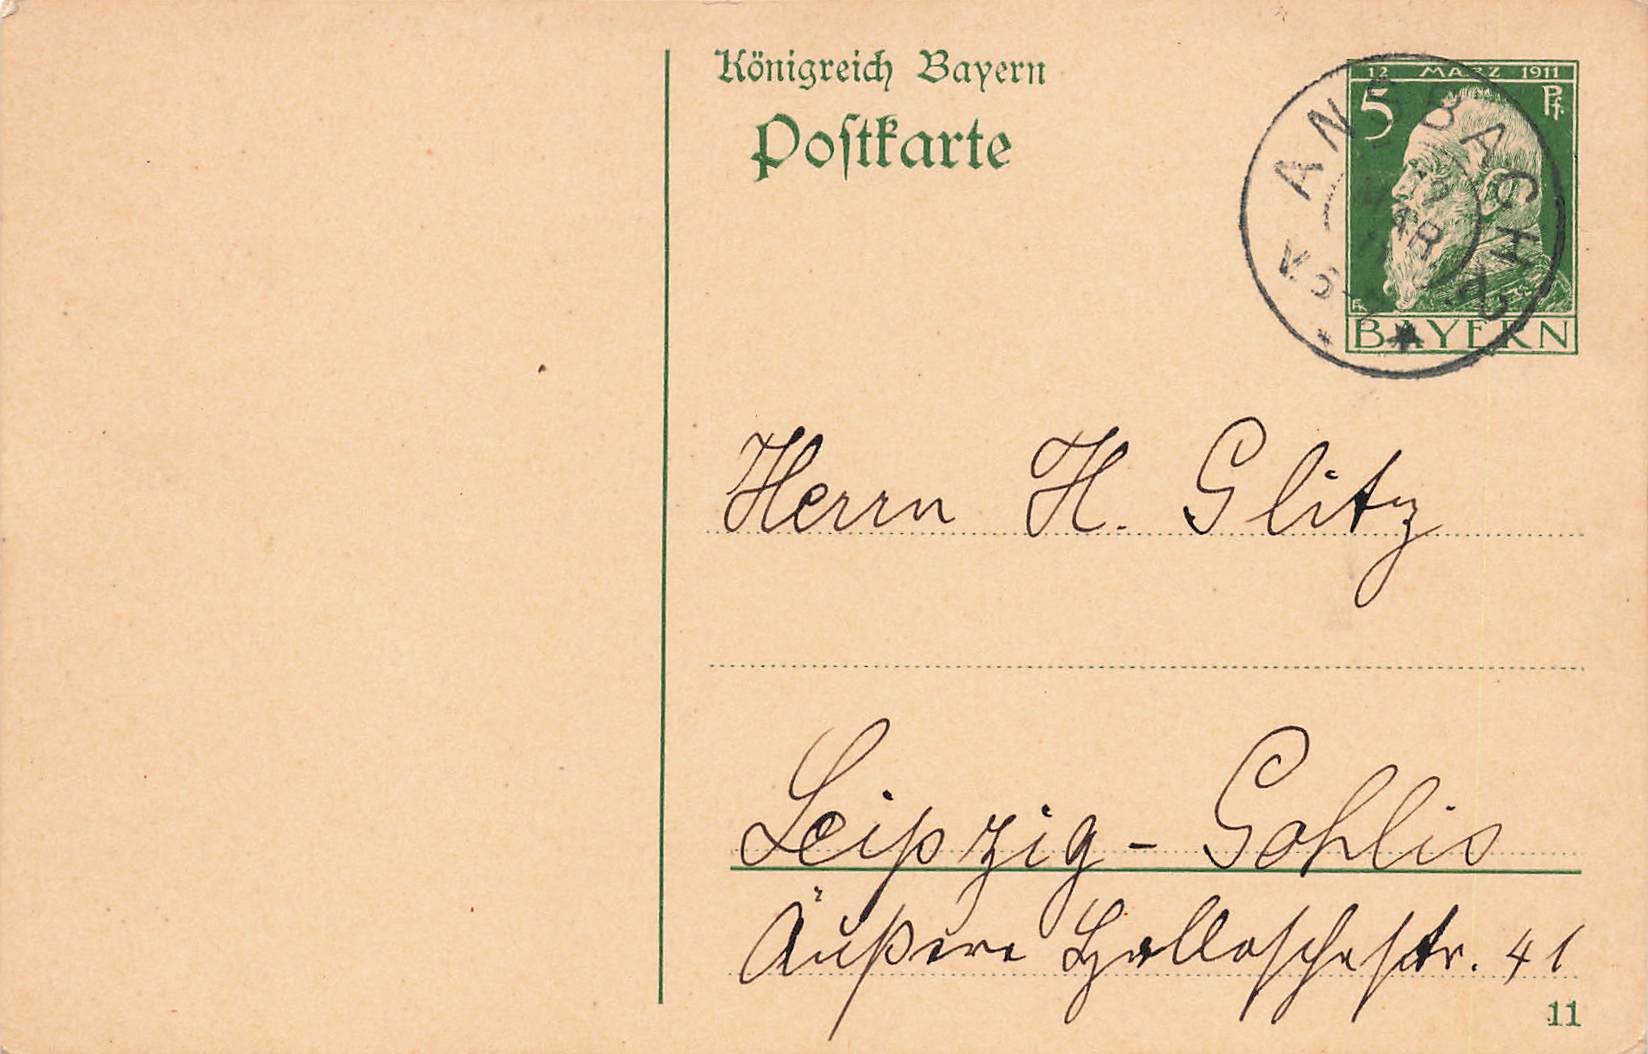 Königreich Bayern
Postkarte
12 MÄRZ 1911
5 Pf.
BAYERN
ANSBACH
Herrn H. Glitz
Leipzig - Gohlis
Äußere Halleschestr. 41
11